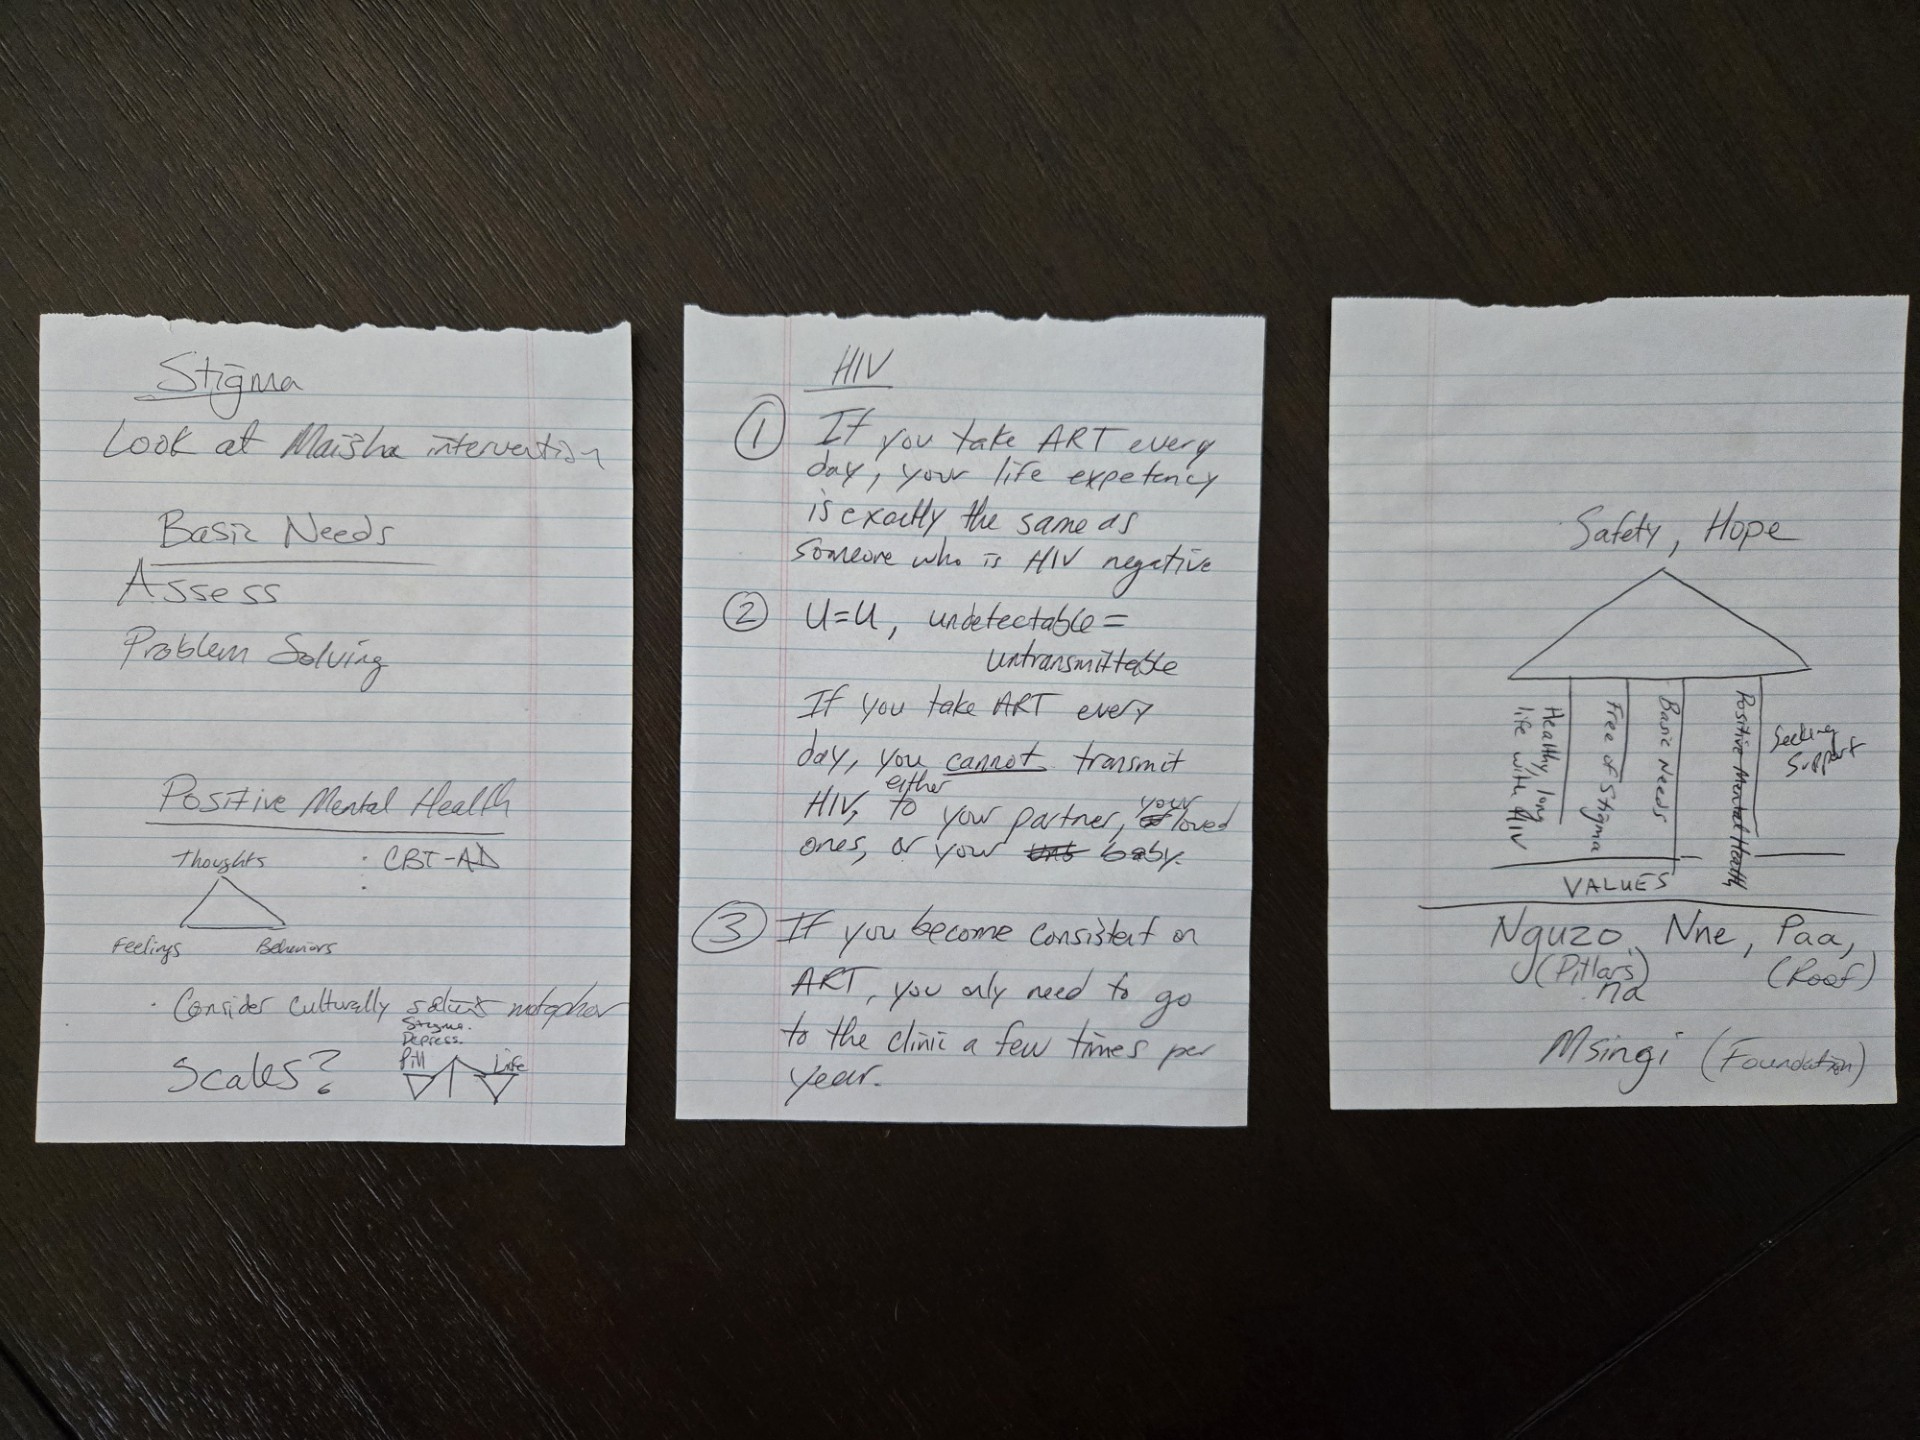 Stigma
Look at Maisha intervention
Basic Needs
Assess
Problem Solving
Positive Mental Health
Thoughts
· CBT-AD
Feelings
Behaviors
· Consider culturally salient metaphor
Stigma.
Depress.
Pill
Life
Scales?
HIV
① If you take ART every
day, your life expetency
is exactly the same as
someone who is HIV negative
② U=U, undetectable =
untransmittable
If you take ART every
day, you cannot transmit
either
HIV, to your partner, your loved
ones, or your baby.
③ If you become consistent on
ART, you only need to go
to the clinic a few times per
year.
Safety, Hope
Healthy, long
life with HIV
Free of Stigma
Basic Needs
Positive Mental Health
Seeking
Support
VALUES
Nguzo Nne, Paa,
(Pillars) (Roof)
na
Msingi (Foundation)